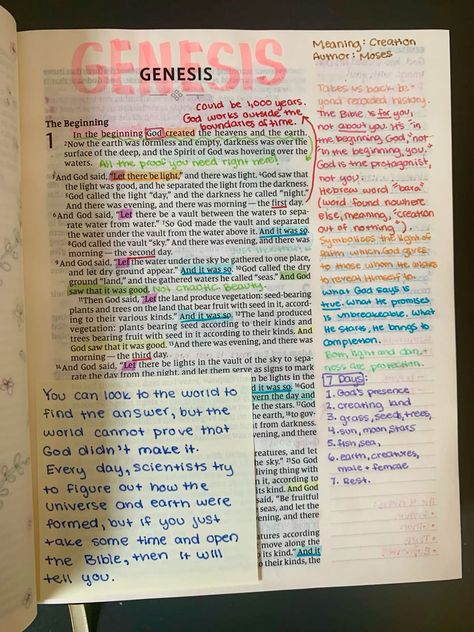 GENESIS
GENESIS
Meaning: Creation
Author: Moses
could be 1,000 years.
God works outside the
boundaries of time.
The Beginning
1 In the beginning God created the heavens and the earth.
2Now the earth was formless and empty, darkness was over the
surface of the deep, and the Spirit of God was hovering over the
waters. All the proof you need right here!
3And God said, "Let there be light," and there was light. 4God saw that
the light was good, and he separated the light from the darkness.
5God called the light "day," and the darkness he called "night."
And there was evening, and there was morning—the first day.
6And God said, "Let there be a vault between the waters to sepa-
rate water from water." 7So God made the vault and separated
the water under the vault from the water above it. And it was so.
8God called the vault "sky." And there was evening, and there was
morning—the second day.
9And God said, "Let the water under the sky be gathered to one place,
and let dry ground appear." And it was so. 10God called the dry
ground "land," and the gathered waters he called "seas." And God
saw that it was good. Not chaotic. Beauty.
11Then God said, "Let the land produce vegetation: seed-bearing
plants and trees on the land that bear fruit with seed in it, accord-
ing to their various kinds." And it was so. 12The land produced
vegetation: plants bearing seed according to their kinds and
trees bearing fruit with seed in it according to their kinds. And
God saw that it was good. 13And there was evening, and there was
morning—the third day.
14And God said, "Let there be lights in the vault of the sky to sepa-
rate the day from the night, and let them serve as signs to mark
be lights in the
d it was so. 16God
vern the day and
de the stars. 17God
the earth, 18to gov-
t from darkness.
vening, and there
eatures, and let
sky." 21So God
living thing with
ording to their
its kind. And God
said, "Be fruitful
seas, and let the
ning, and there
atures according
move along the
o its kind." And it
o their kinds, the
Takes us back be-
yond recorded history.
The Bible is for you,
not about you. It's "in
the beginning, God," not
"in the beginning, you."
God is the protagonist,
not you.
Hebrew word "bara"
(word found nowhere
else, meaning, "creation
out of nothing")
Symbolises the light of
faith which God gives
to those whom He allows
to reveal Himself to.
What God says is
true. What He promises
is unbreakable. What
He starts, He brings to
completion.
Both light and dark-
ness are protection.
7 Days:
1. God's presence
2. creating land
3. grass, seeds, trees,
4. sun, moon stars
5. fish, sea,
6. earth, creatures,
male + female
7. Rest.
You can look to the world to
find the answer, but the
world cannot prove that
God didn't make it.
Every day, scientists try
to figure out how the
universe and earth were
formed, but if you just
take some time and open
the Bible, then it will
tell you.